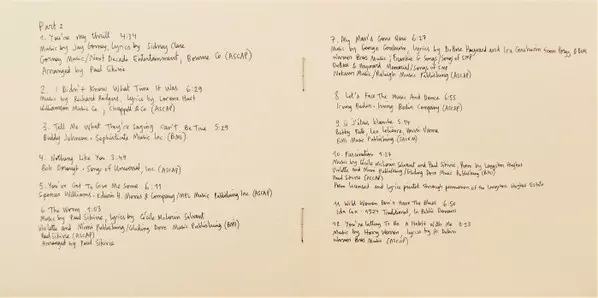 Part 2
1. You're my thrill 4:34
Music by Jay Gorney, lyrics by Sidney Clare
Gorney Music/Next Decade Entertainment, Bourne Co (ASCAP)
Arranged by Paul Sikivie
2. I Didn't Know What Time It Was 6:29
Music by Richard Rodgers, lyrics by Lorenz Hart
Williamson Music Co, Chappell & Co (ASCAP)
3. Tell Me What They're Saying Can't Be True 5:29
Buddy Johnson - Sophisticate Music Inc. (BMI)
4. Nothing Like You 3:49
Bob Dorough - Songs of Universal, Inc (ASCAP)
5. You've Got To Give Me Some 6:11
Spencer Williams - Edwin H. Morris & Company/MPL Music Publishing Inc (ASCAP)
6. The Worm 1:03
Music by Paul Sikivie, lyrics by Cécile McLorin Salvant
Violette and Mimi Publishing/Gliding Dove Music Publishing (BMI)
Paul Sikivie (ASCAP)
Arranged by Paul Sikivie
7. My Man's Gone Now 6:27
Music by George Gershwin, lyrics by DuBose Heyward and Ira Gershwin from Porgy & Bess
Warner Bros Music/ Songs of SMP
DuBose & Heyward Memorial/Songs of SMP
Nokawi Music/Raleigh Music Publishing (ASCAP)
8. Let's Face The Music And Dance 6:55
Irving Berlin - Irving Berlin Company (ASCAP)
9. Si J'étais blanche 5:14
Bobby Falk, Leo Lelièvre, Henri Varna
EMI Music Publishing (SACEM)
10. Fascination 1:27
Music by Cécile McLorin Salvant and Paul Sikivie, Poem by Langston Hughes
Violette and Mimi Publishing/Gliding Dove Music Publishing (BMI)
Paul Sikivie (ASCAP)
Poem licensed and lyrics printed through permission of the Langston Hughes Estate
11. Wild Women Don't Have The Blues 6:50
Ida Cox - 1924 Traditional, In Public Domain
12. You're Getting To Be A Habit With Me
Music by Harry Warren, lyrics by Al Dubin
Warner Bros Music (ASCAP)